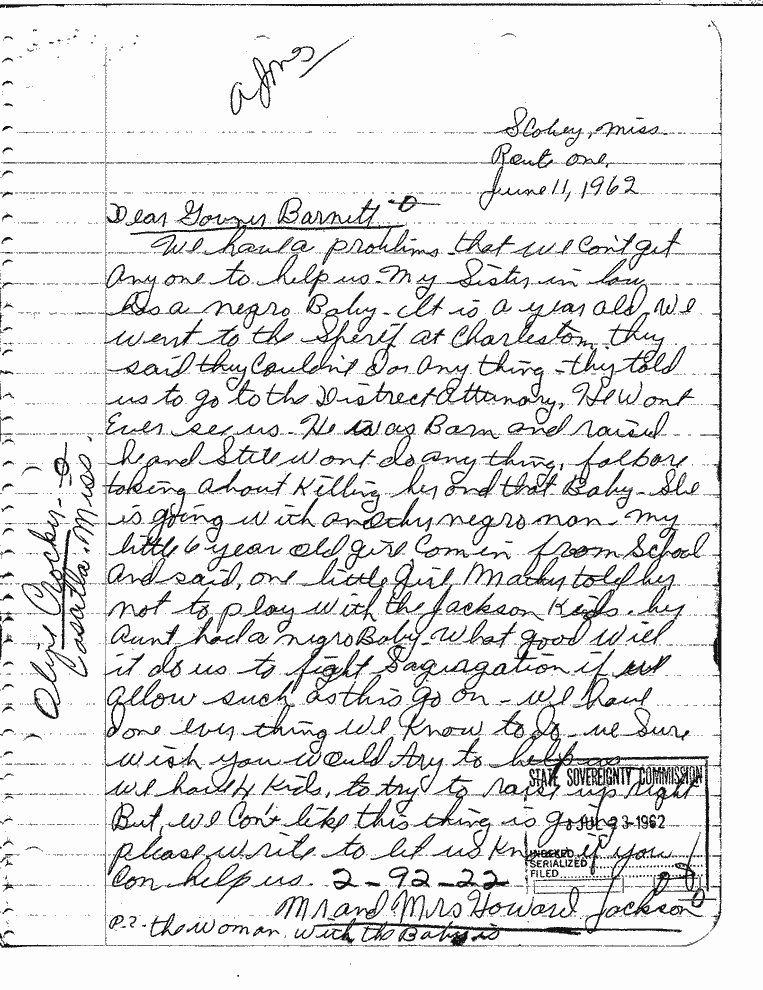 Scobey, Miss.
Route one.
June 11, 1962
Dear Govner Barnett
We have a problims that we can't get
anyone to help us. My Sister in law
has a negro Baby. It is a year old, we
went to the Sperif at Charleston they
said they Couldn't do any thing - they told
us to go to the Distrect Atturnary, He wont
Ever see us. He was Barn and raised
he and Still wont do any thing, folk are
taking about Killing her and that Baby - She
is going with another negro man - my
little 6 year old girl Com in from School
and said, one little girl Mother told her
not to play with the Jackson Kids. her
aunt had a negro Baby. What good will
it do us to fight Sagurgation if we
allow such as this go on - we have
done ever thing we Know to do - we Sure
wish you would try to help us
we have 4 Kids, to try to raise up right
But, we Can't like this thing is going
please write to let us know if you
Can help us. 2-92-22
Mr and Mrs Howard Jackson
P.?. the woman with the Baby is
Miss.
STATE SOVEREIGNTY COMMISSION
JUL 23 1962
INDEXED
SERIALIZED
FILED